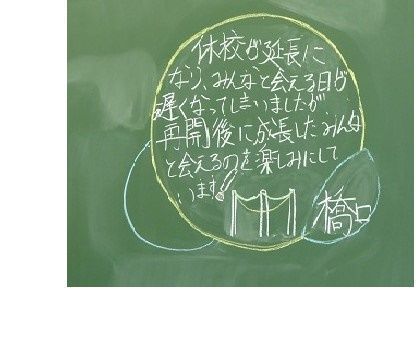 休校が延長に
なり、みんなと会える日が
遅くなってしまいましたが
再開後に成長したみんな
と会えるのを楽しみにして
います!
橋口